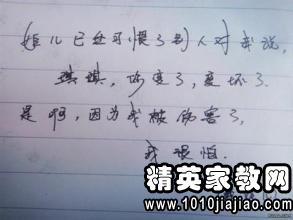 姐儿已经习惯了别人对我说，
琪琪，你变了，变坏了.
是啊，因为我被伤害了，
我很怕.
精英家教网
www.1010jiajiao.com